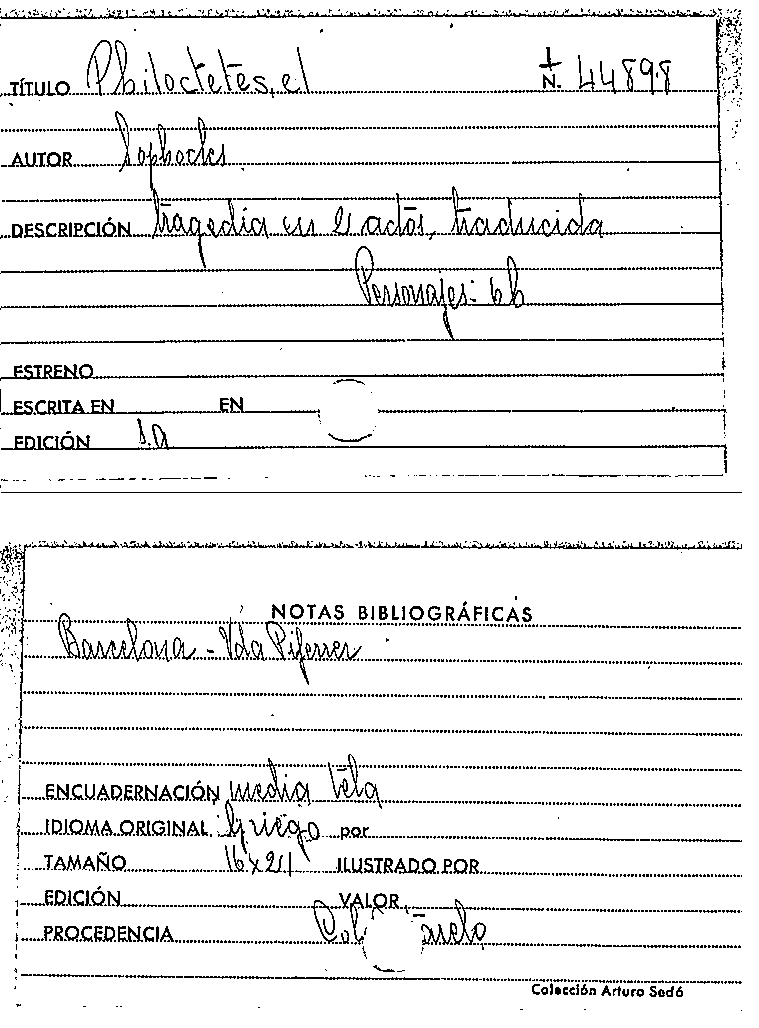 TÍTULO Philoctetes, el N. 44898
AUTOR Sophocles
DESCRIPCIÓN tragedia en actos, traducida
Personajes: 6h
ESTRENO
ESCRITA EN EN
EDICIÓN s.a
NOTAS BIBLIOGRÁFICAS
Barcelona - Vda Piferrer
ENCUADERNACIÓN media tela
IDIOMA ORIGINAL Griego por
TAMAÑO 16x21 ILUSTRADO POR
EDICIÓN VALOR
PROCEDENCIA
Colección Arturo Sedó